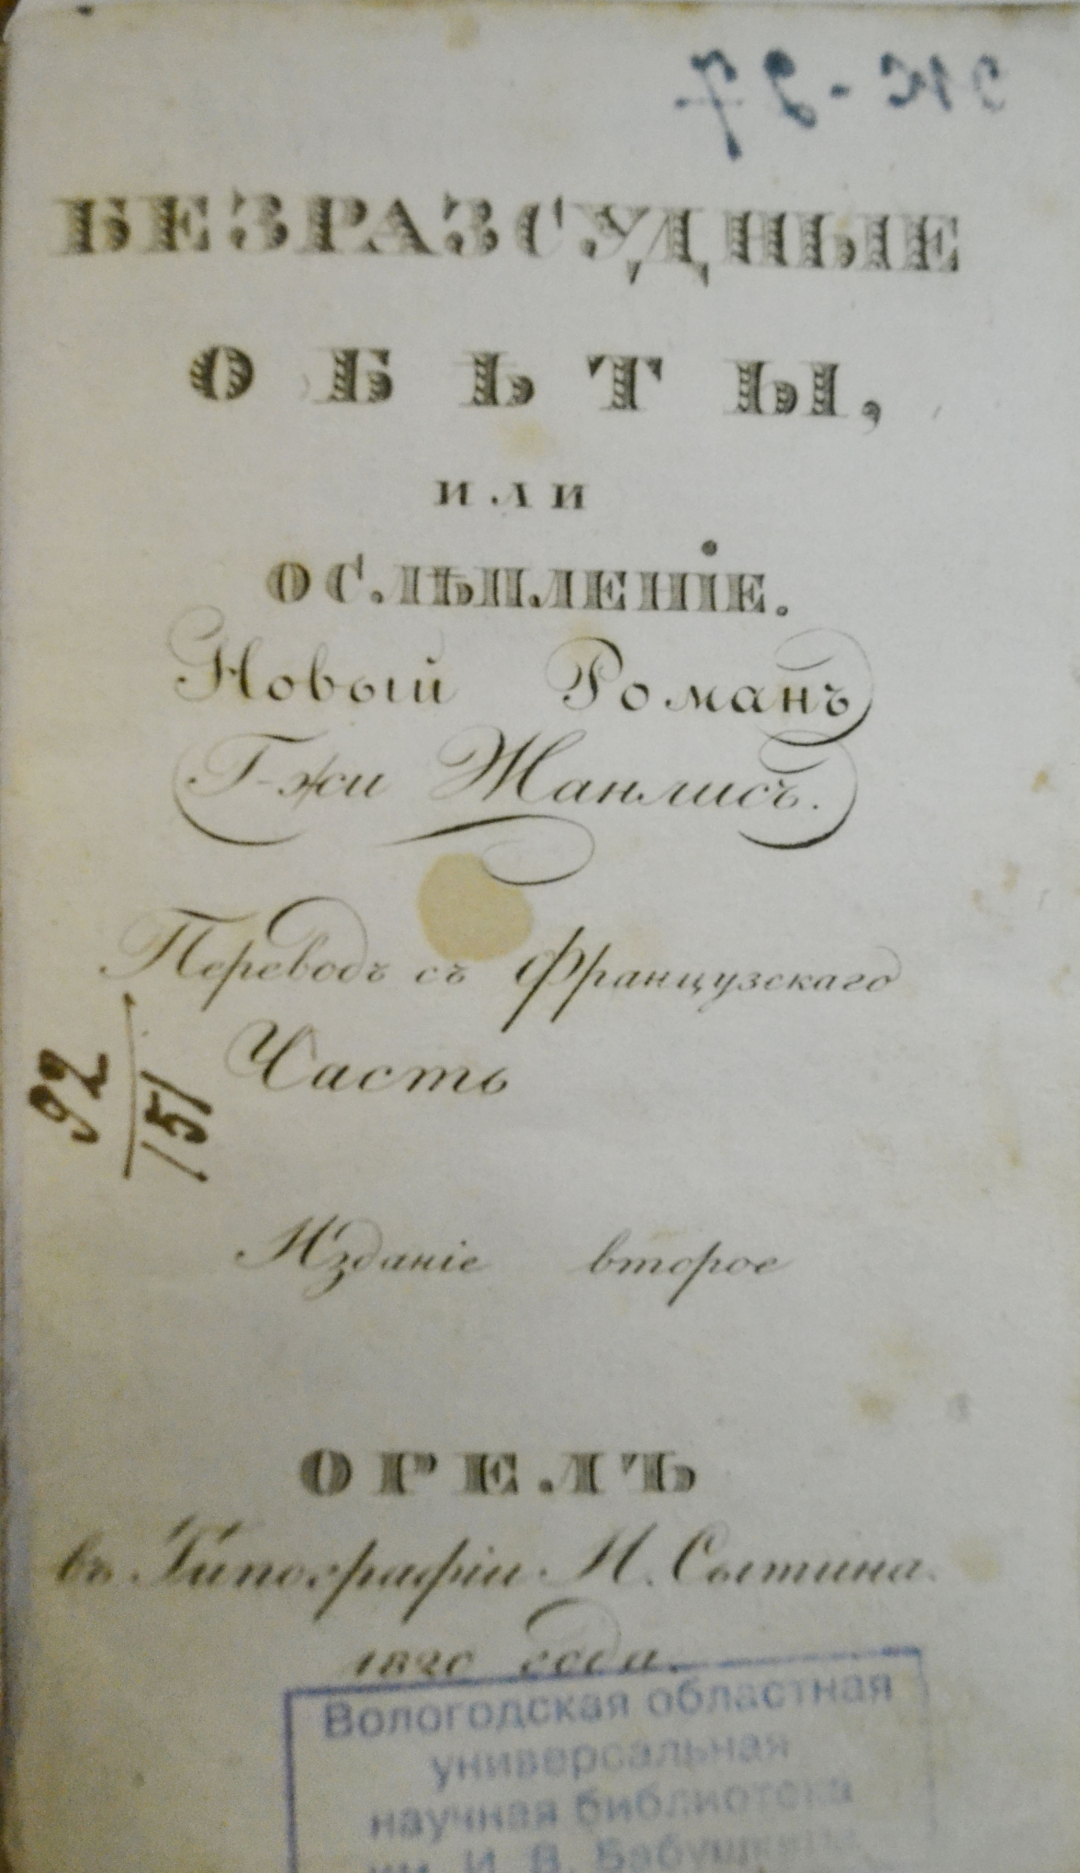 БЕЗРАЗСУДНЫЕ
ОБѢТЫ,
ИЛИ
ОСЛѢПЛЕНІЕ.
Новый Романъ
Г-жи Жанлисъ.
Переводъ съ Французскаго
Часть
92
151
Изданіе второе
ОРЕЛЪ
въ Типографіи И. Сытина.
1820 года.
Вологодская областная
универсальная
научная библиотека
им. И. В. Бабушкина